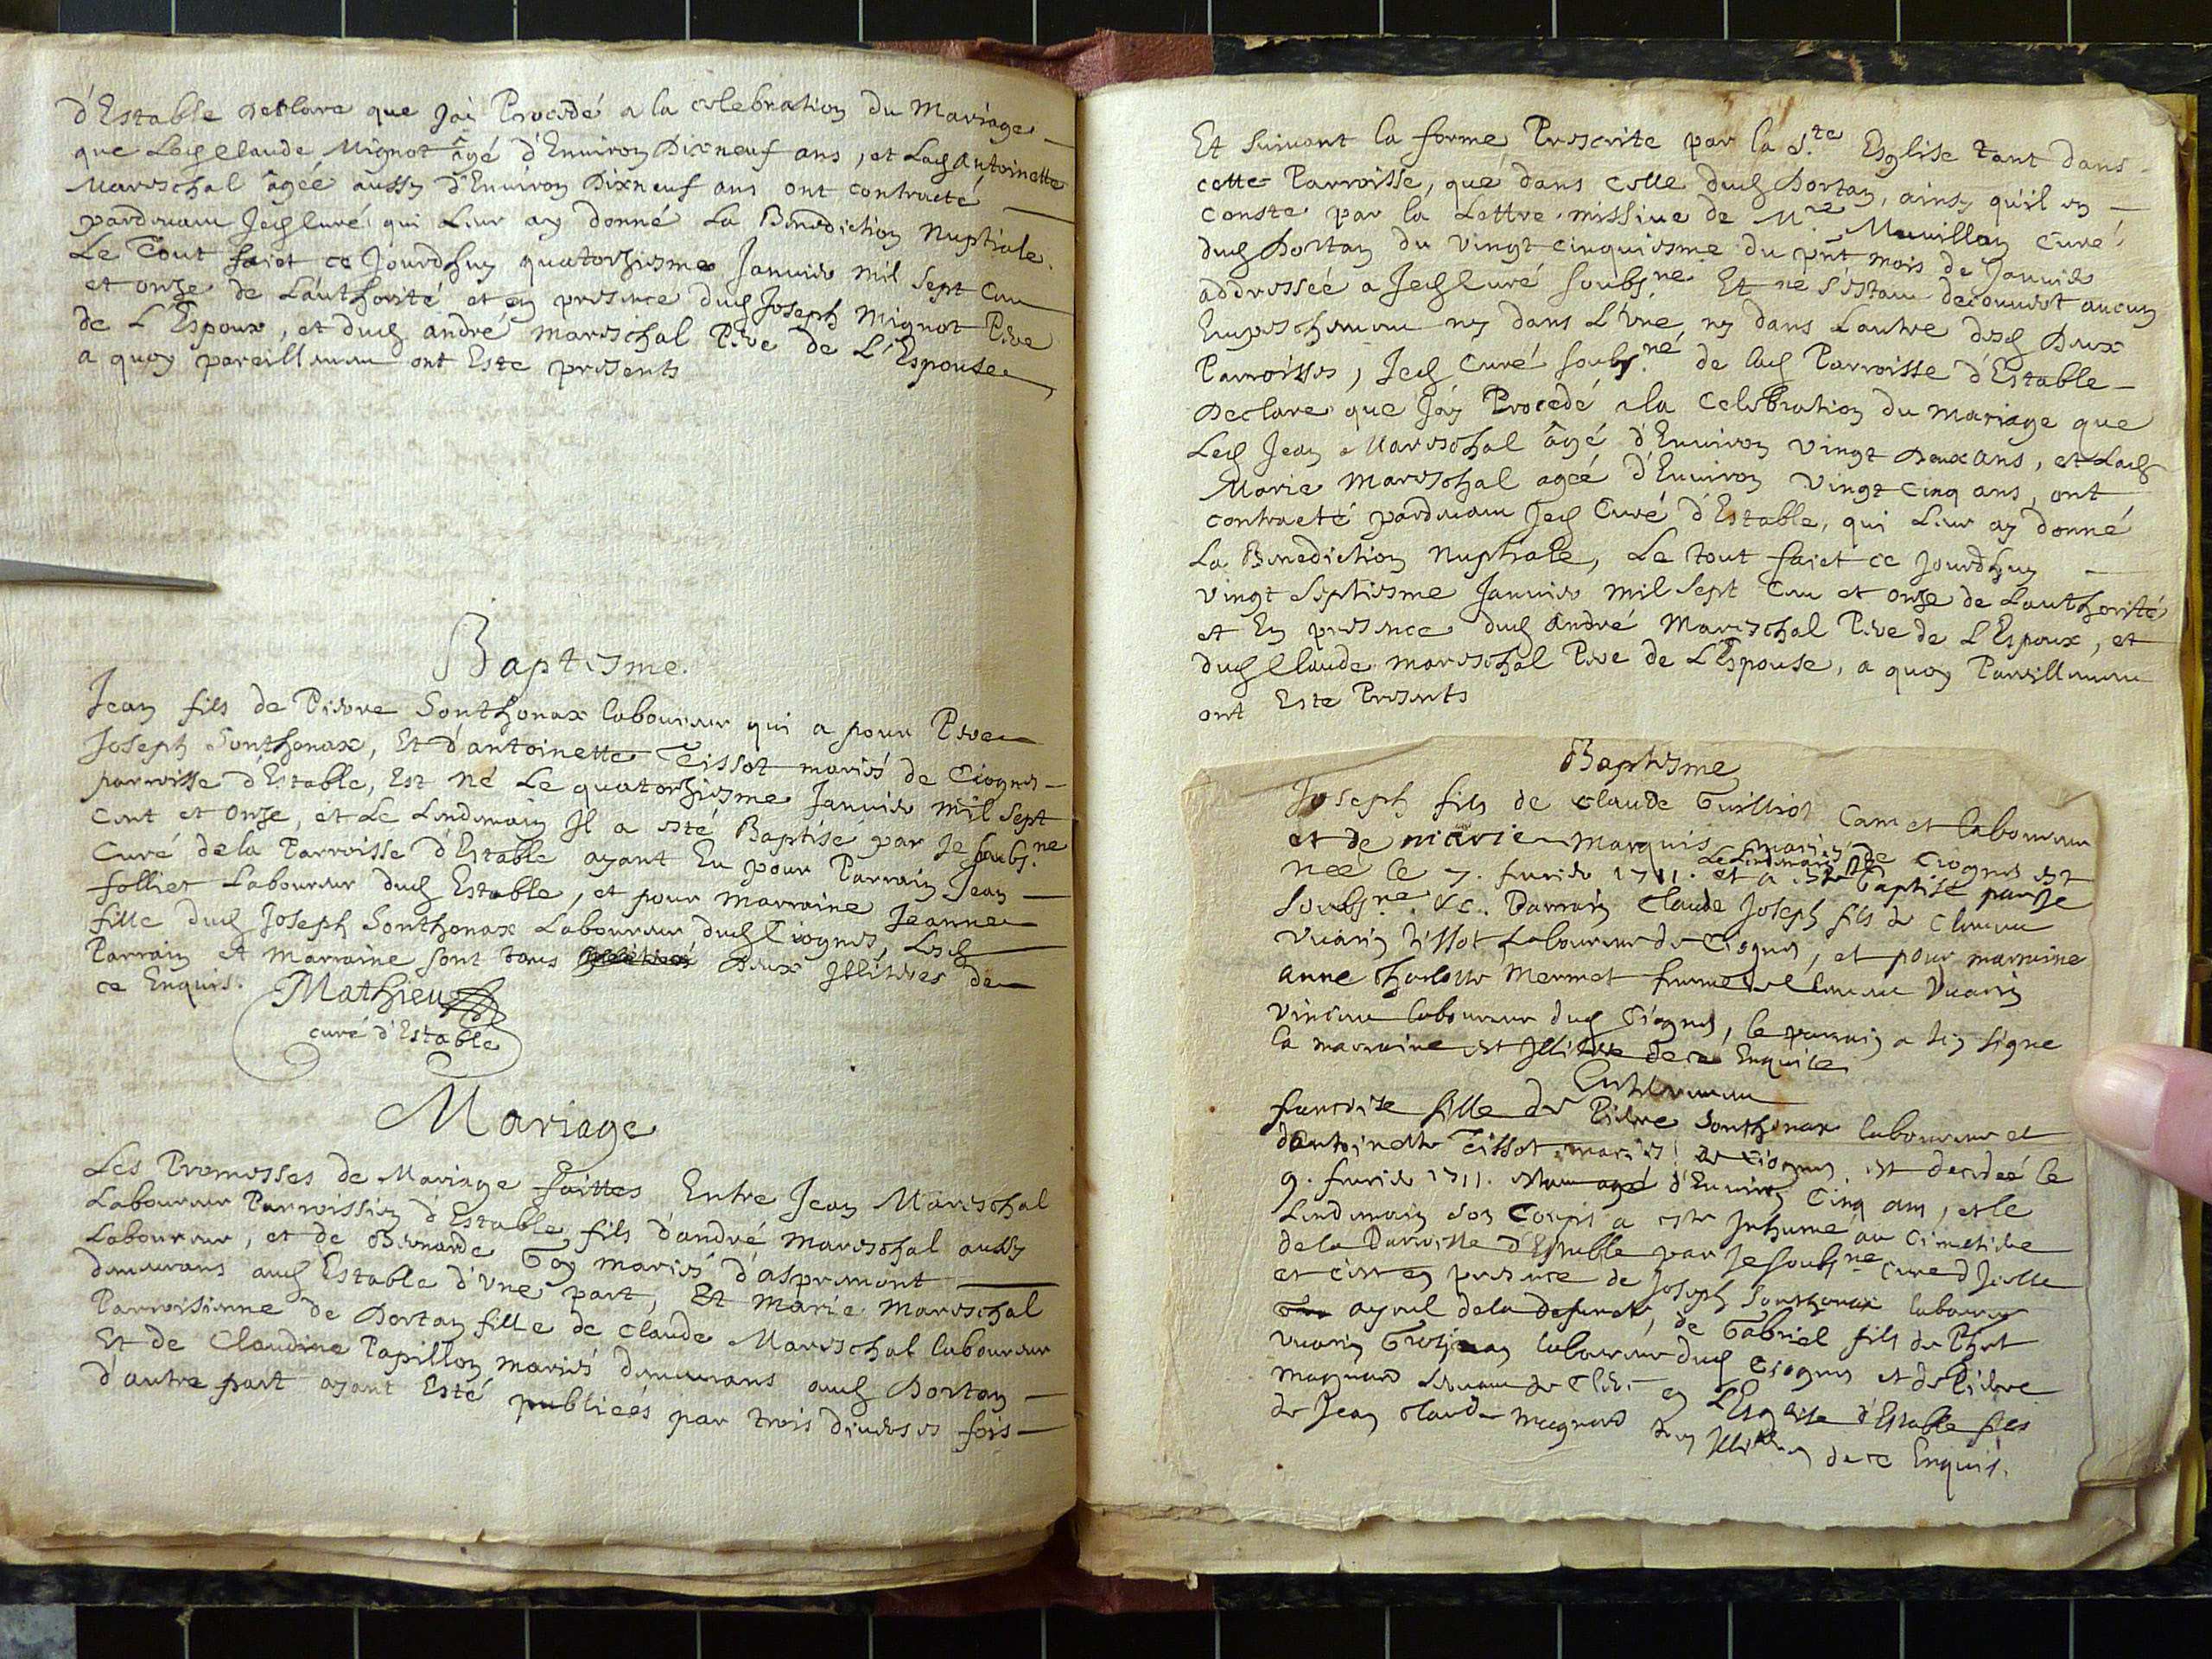 d'Estable declare que Jai Procedé a la celebration du Mariage
que Led Claude Mignot âgé d'Environ Dixneuf ans, et Lad antoinette
Mareschal âgée aussy d'Environ Dixneuf ans ont contracté
pardeuant Jed Curé qui Leur ay donné La Benediction Nuptiale.
Le Tout faict ce Jourdhuy quatorzieme Januier mil sept Cen
et onze de L'authorité et en presence dud Joseph Mignot Pere
de L'Espoux, et dud andré mareschal Pere de L'Espouse
a quoy pareillemen ont Este presents
Baptesme.
Jean fils de Pierre Sonthonax laboureur qui a pour Pere
Joseph Sonthonax, Et d'antoinette Tissot mariés de Ciognes
parroisse d'Estable, Est né Le quatorzieme Januier mil sept
Cent et onze, et Le Lendemain Il a esté Baptisé par Je soubs.né
Curé dela Parroisse d'Estable ayant Eu pour Parrain Jean
folliet Laboureur dud Estable, et pour marraine Jeanne
fille dud Joseph Sonthonax Laboureur dud Ciognes, Lesd
Parrain et Marraine sont tous Deux Jlliteres de
ce Enquis.
Mathieu
curé d'Estable
Mariage
Les Promesses de Mariage faittes Entre Jean Mareschal
Laboureur Parroissien d'Estable fils d'andré mareschal aussy
Laboureur, et de Bernarde Goy mariés d'aspremont
demeurans aud Estable d'vne part, Et Marie Mareschal
Parroisienne de Dortan fille de Claude Mareschal laboureur
Et de Claudine Papillon mariés demeurans aud Dortan
d'autre part ayant Esté publiées par trois diuerses fois
Et Suiuant la forme Prescrite par la S.te Esglise tant dans
cette Parroisse, que dans Celle dud Dortan, ainsy qu'il en
conste par la Lettre missiue de M.re Meuillon Curé
dud Dortan du vingt cinquiesme du pñt mois de Januier
addressée a Jed Curé soubs.né Et ne s'estan decouuert aucun
Empeschemen ny dans L'vne, ny dans Lautre desd Deux
Parroisses, Jed Curé soubs.né de lad Parroisse d'Estable
Declare que Jay Procedé a la Celebration du mariage que
Led Jean Mareschal âgé d'Enuiron vingt Deux ans, et Lad
Marie Mareschal agée d'Enuiron vingt Cinq ans, ont
contracté pardeuan Jed Curé d'Estable, qui Leur ay donné
La Benediction Nuptiale, Le tout faict ce jourdhuy
vingt Septiesme Januier mil sept Cen et onze de L'authorité
et En presence dud André Mareschal Pere de L'Espoux, et
dud Claude mareschal Pere de L'Espouse, a quoy Pareillemen
ont Este Presents
Baptesme
Joseph fils de Claude Guilliot Camet laboureur
et de marie Marquis mariés de Ciognes est
née le 7. feurier 1711. et a este Le Lendemain Baptisé par Je
Soubs.né &c. Parrain Claude Joseph fils de Clemen
Vuarin tissot Laboureur de Ciognes, et pour marraine
anne Mermet femme de Clemen Vuarin
vincen laboureur dud Ciognes, le parrain a sig signe
la marraine est Jllitere de ce Enquise
Enterremen
francoise fille de Pierre Sonthonax laboureur et
dantoinette Tissot mariés de Ciognes est decedée le
9. feurier 1711. d'Enuiron Cinq ans, et le
Lendemain son Corps a este Inhumé au Cimetiere
dela Parroisse d'Estable par Je soubs.né Curé d'Jcelle
et c'est en presence de Joseph Sonthonax laboureur
ayeul dela defuncte, de Gabriel fils de
vuarin Grosjean laboureur dud Ciognes et de Pierre
maynard en L'Esglise d'Estable fils
de Jean Claude maynard Jlliteres de ce Enquis.